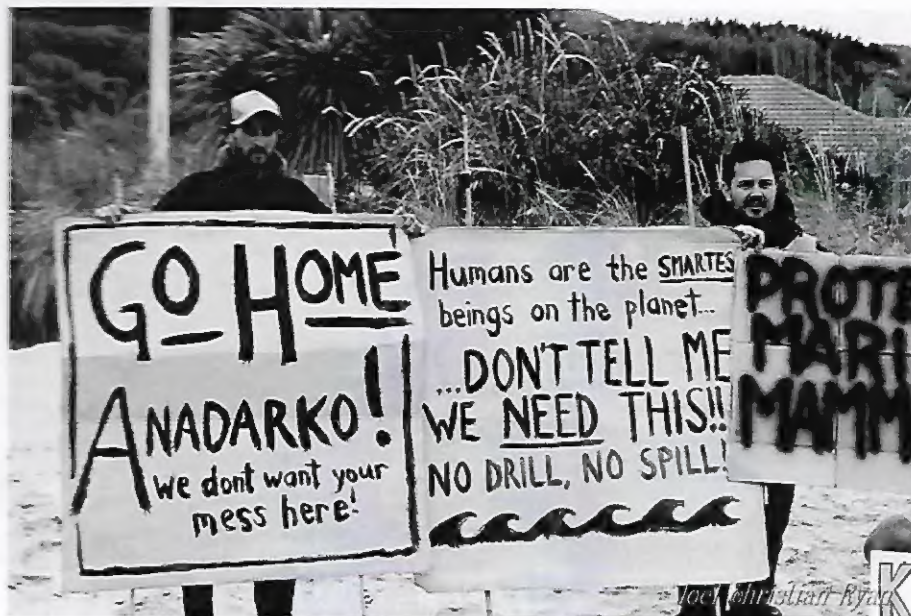 GO HOME
ANADARKO!
we dont want your
mess here!
Humans are the SMARTES
beings on the planet...
...DON'T TELL ME
WE NEED THIS!!
NO DRILL, NO SPILL!
PROTE
MARI
MAMM
K
Christian Ryan